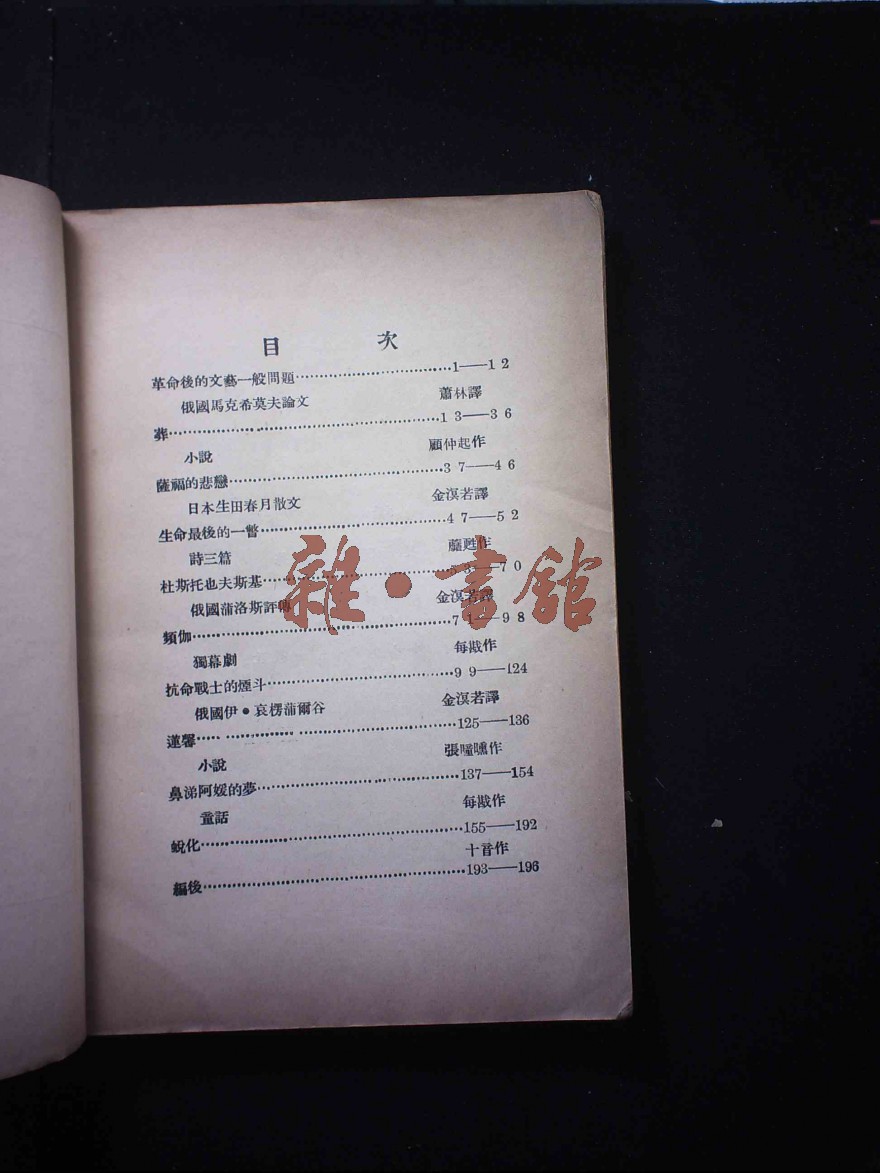 目 次
革命後的文藝一般問題……………………………1——12
俄國馬克希莫夫論文 蕭林譯
葬……………………………13——36
小說 顧仲起作
薩福的悲戀……………………………37——46
日本生田春月散文 金溟若譯
生命最後的一瞥……………………………47——52
詩三篇 甦作
杜斯托也夫斯基……………………………53——70
俄國蒲洛斯評傳 金溟若譯
頻伽……………………………71——98
獨幕劇 每戡作
抗命戰士的煙斗……………………………99——124
俄國伊•哀楞蒲爾谷 金溟若譯
蓮馨……………………………125——136
小說 張曈曛作
鼻涕阿媛的夢……………………………137——154
童話 每戡作
蛻化……………………………155——192
十音作
編後……………………………193——196
雜•書館